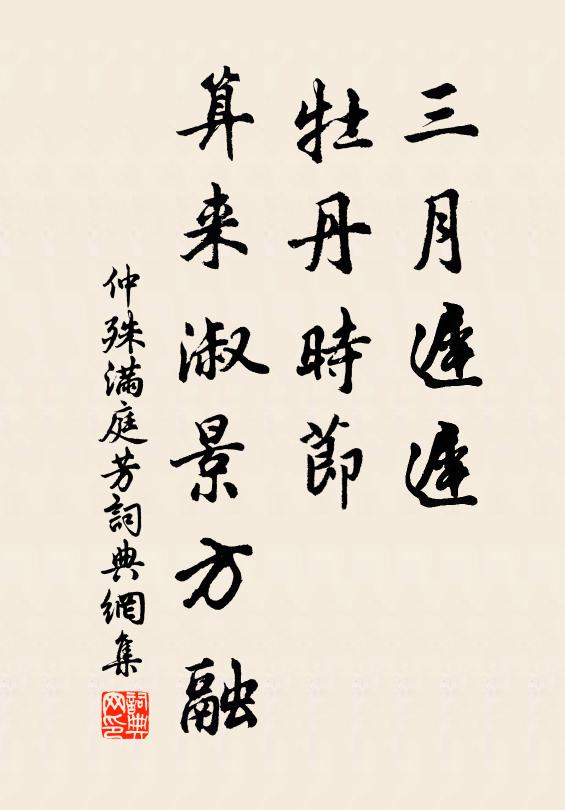 三月遲遲
牡丹時節
算来淑景方融
仲殊滿庭芳詞典網集
詞典
网印